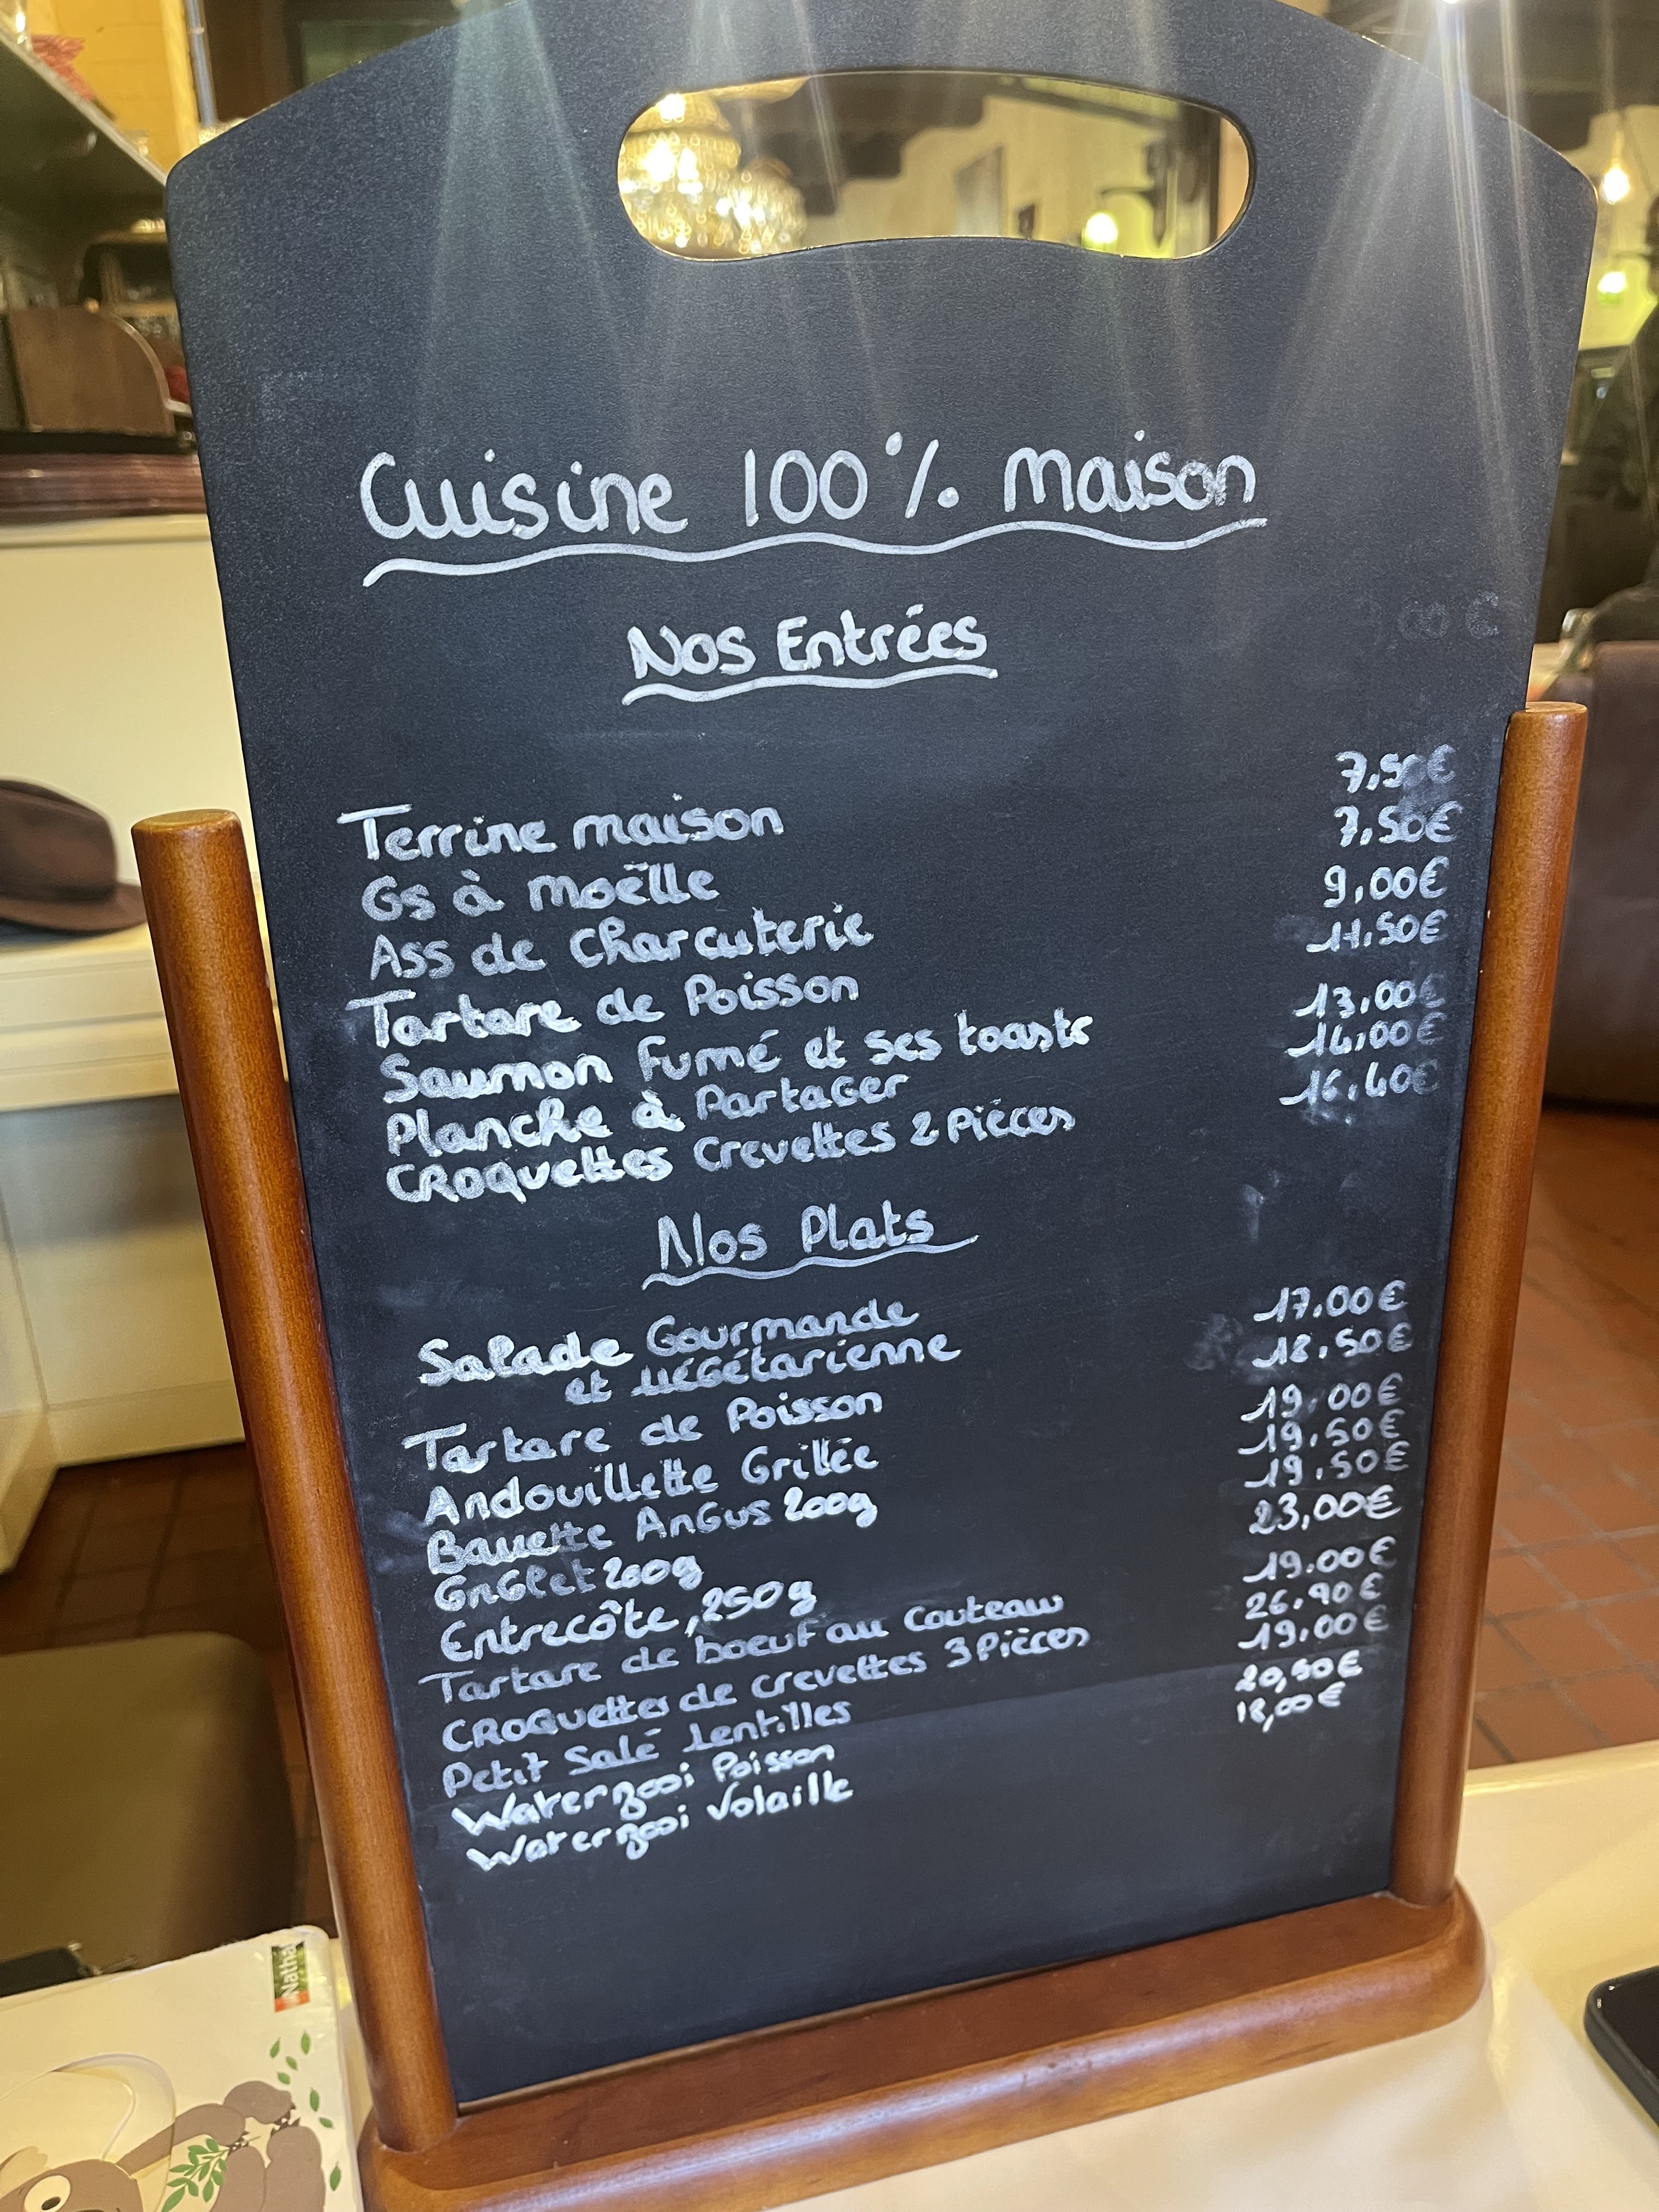 Cuisine 100% maison
Nos Entrées
Terrine maison 7,50€
Os à Moëlle 7,50€
Ass de Charcuterie 9,00€
Tartare de Poisson 11,50€
Saumon Fumé et ses toasts 13,00€
Planche à Partager 14,00€
CRoquettes Crevettes 2 Pièces 16,40€
Nos Plats
Salade Gourmande 17.00€
et végétarienne
Tartare de Poisson 18,50€
Andouillette Grillée 19,00€
Bavette Angus 200g 19,50€
Onglet 200g 19,50€
Entrecôte, 250g 23,00€
Tartare de boeuf au Couteau 19.00€
CROQuettes de crevettes 3 Pièces 26,90€
Petit Salé Lentilles 19,00€
Waterzooi Poisson 20,50€
Waterzooi Volaille 18,00€
Nathan